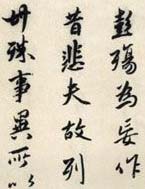 彭殤為妄作
昔悲夫故列
世殊事異所以